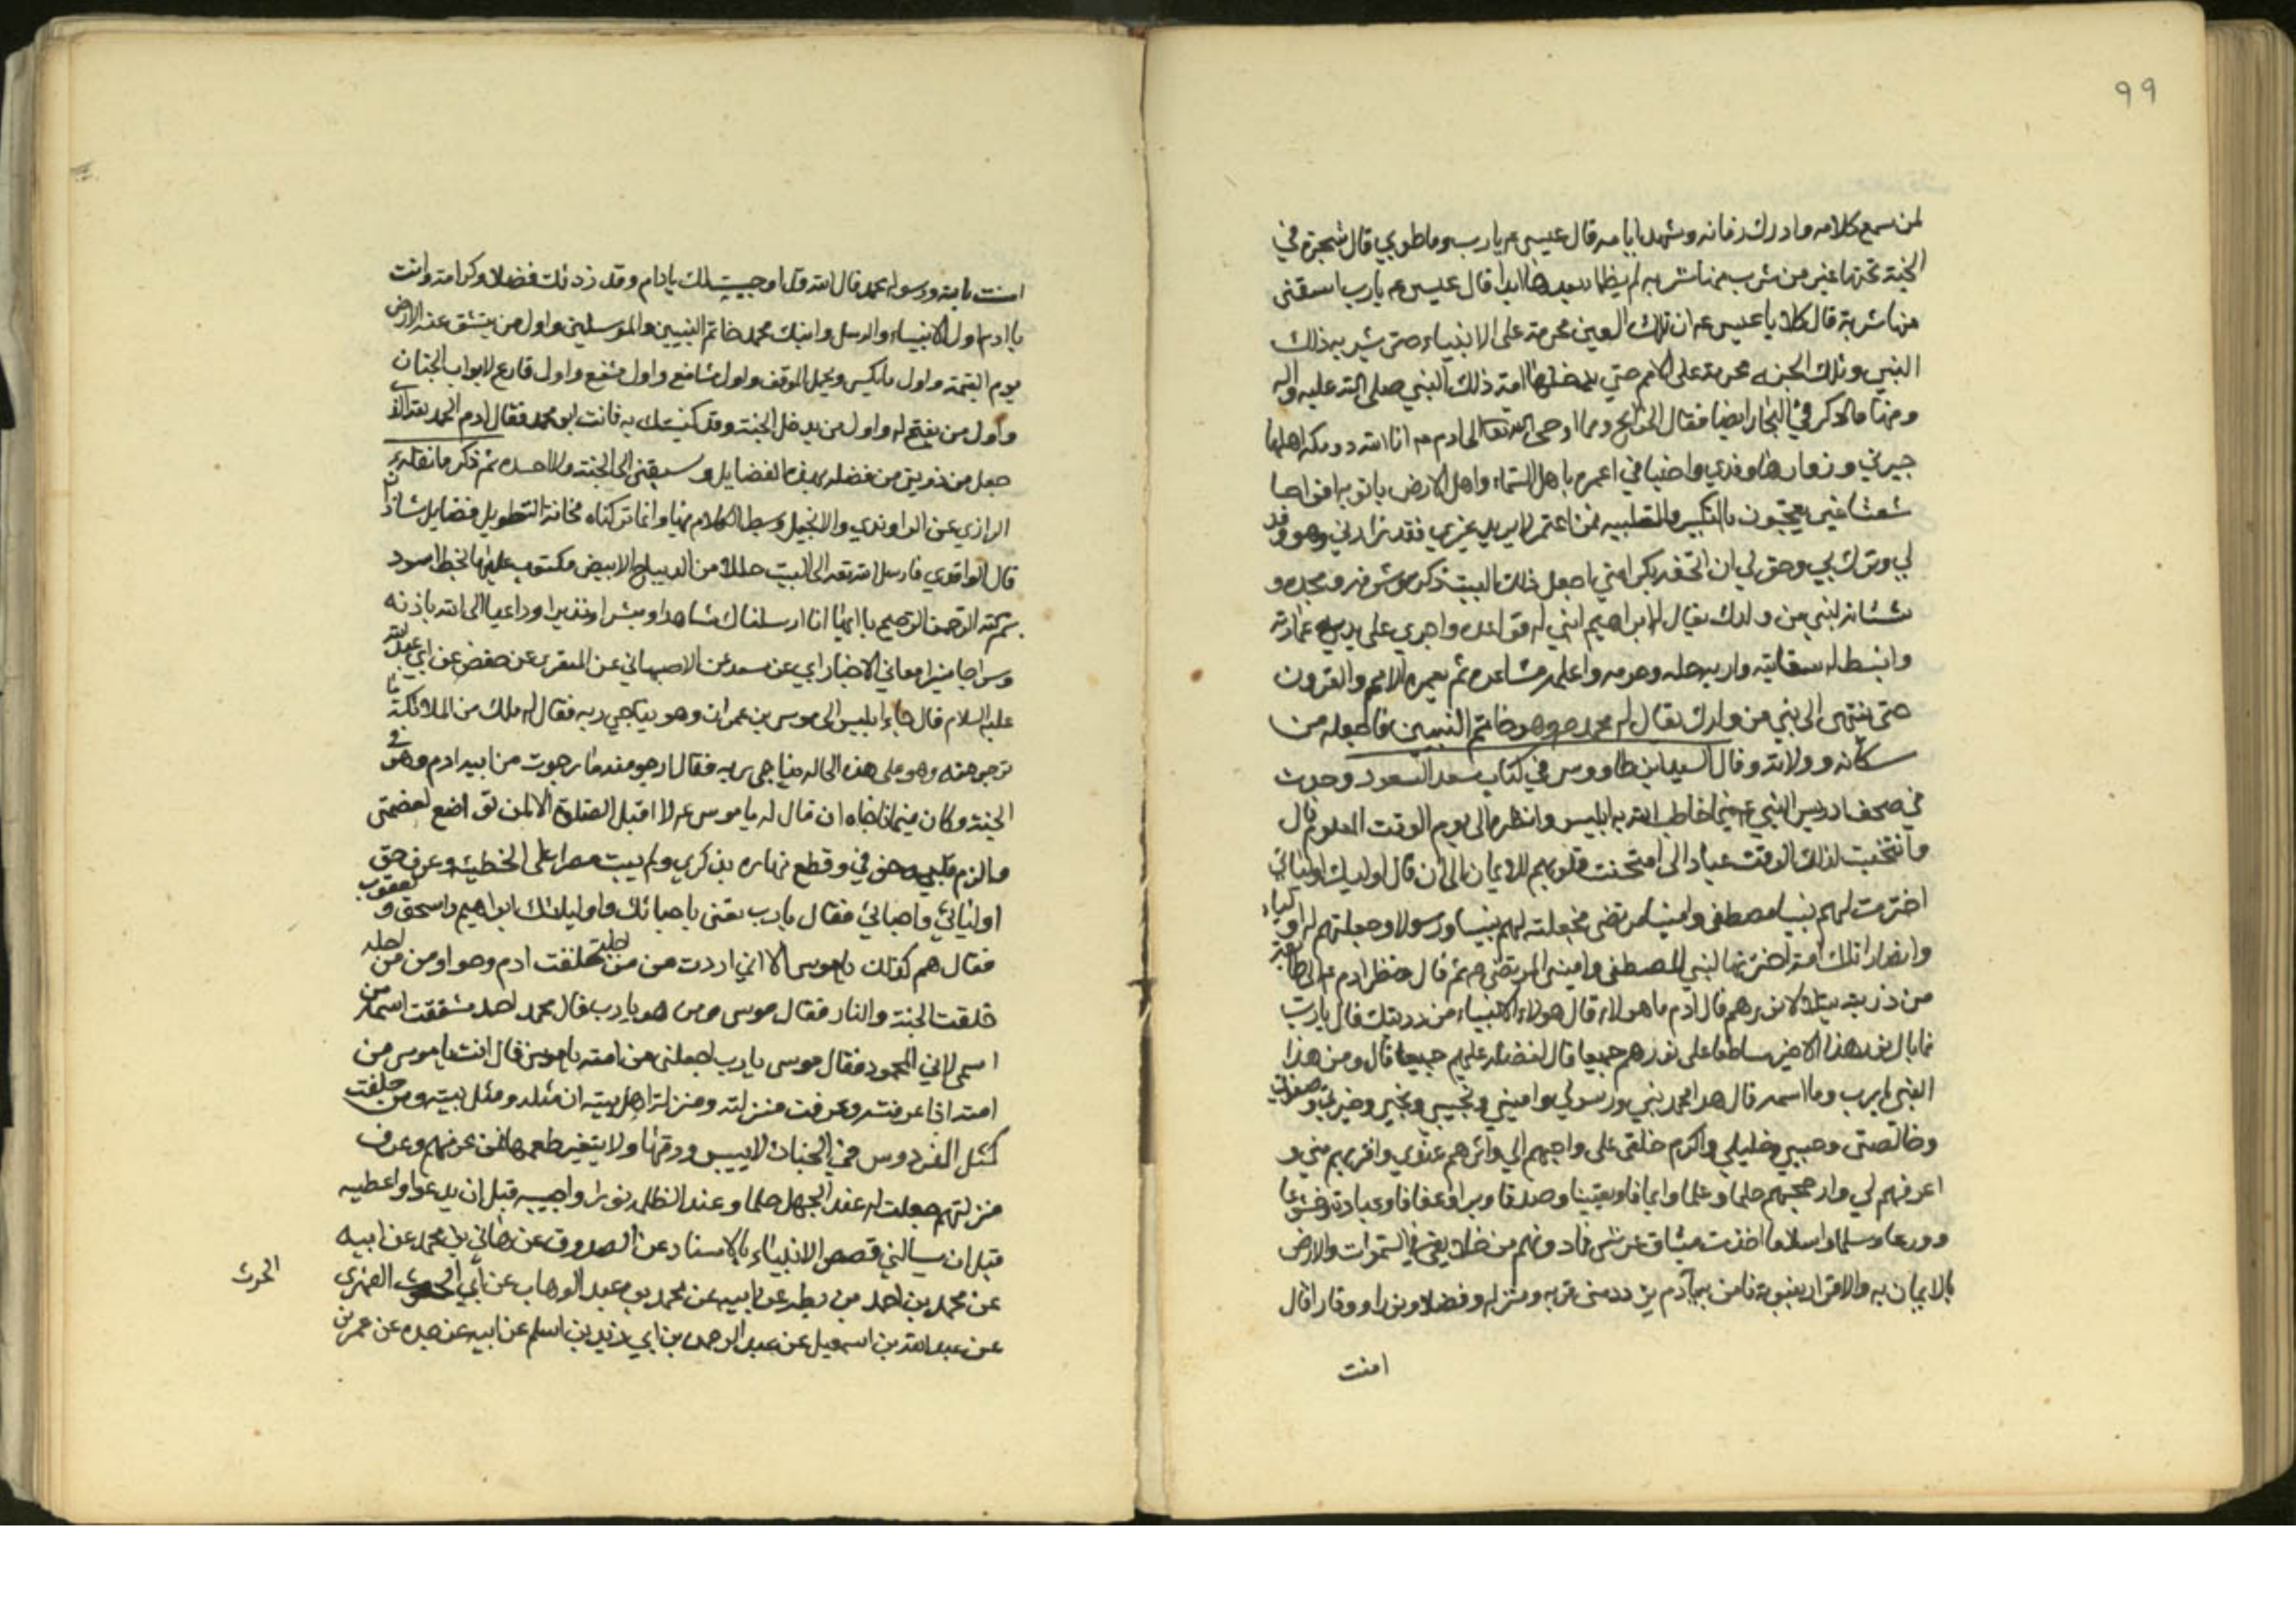 ٩٩
لمن سمع كلامه وادرك زمانه وشهد ايامه قال عيسى عم يارب وما طوبي قال شجرة في
الجنة تحتها عين من شرب منها شربه لم يظما بعدها ابدا قال عيسى عم يارب اسقنى
منها شربة قال كلا يا عيسى عم ان تلك العين محرمة على الانبياء حتى يشربه ذلك
النبي وتلك الجنه محرمة على الامم حتي يدخلها امة ذلك النبي صلى الله عليه واله
ومنها ما ذكر في البحار ايضا فقال اوحى الله تعالى الى ادم عم انا الله ذو بكة اهلها
جيرني وزوارها وفدي واضيافي اعمره باهل السماء واهل الارض ياتونه افواجا
شعثا غبرا يعجون بالتكبير والتلبيه فمن اعتمره لا يريد غيري فقد زارني وهو وفد
لي ونزل بي وحق لي ان اتحفه بكرامتي اجعل ذلك البيت ذكره وشرفه ومجده و
سنائه لنبي من ولدك يقال له ابراهيم ابني له قواعده واجري على يديه عمارته
وانبط له سقايته واريه حله وحرمه واعلمه مشاعره ثم يعمره الامم والقرون
حتى ينتهى الى نبي من ولدك يقال له محمد ص وهو خاتم النبيين فاجعله من
سكانه وولاته وقال السيد ابن طاووس في كتاب سعد السعود وجدت
في صحف ادريس النبي عم فيما خاطب الله به ابليس وانظره الى يوم الوقت المعلوم قال
وانتخبت لذلك الوقت عبادا لى امتحنت قلوبهم للايمان الى ان قال اوليك اوليائي
اخترت لهم نبيا مصطفى وامينا مرتضى فجعلته لهم نبيا ورسولا وجعلتهم له اولياء
وانصارا تلك امة اخترتها لنبي المصطفى واميني المرتضى ثم قال فنظر ادم عم الى طائفة
من ذريته يتلالا نورهم قال ادم ما هولاء قال هولاء الانبياء من ذريتك قال يارب
فما بال نور هذا الاخير ساطعا على نورهم جميعا قال لفضله عليهم جميعا قال ومن هذا
النبي يارب وما اسمه قال هذا محمد نبي ورسولي واميني ونجيبي ونجيي وخيرتي وصفوتي
وخالصتى وحبيبي وخليلي واكرم خلقى على واحبهم الي واثرهم عندي واقربهم مني و
اعرفهم لي وارجحهم حلما وعلما وايمانا ويقينا وصدقا وبرا وعفافا وعبادة وخشوعا
وورعا وسلما واسلاما اخذت ميثاق عرشى فما دونهم من خلايقي في السموات والارض
بالايمان به والاقرار بنبوته فامن به يا آدم يزد منى قربه ومنزله وفضلا ونورا ووقارا قال
امنت
امنت بالله وبرسوله محمد قال الله قد اوجبت لك يا ادم وقد زدتك فضلا وكرامة وانت
يا ادم اول الانبياء والرسل وابنك محمد خاتم النبيين والمرسلين واول من ينشق عنه الارض
يوم القيمة واول ما يكسى ويحمل الموقف واول شافع واول مشفع واول قارع لابواب الجنان
واول من يفتح له واول من يدخل الجنة وقد كنيتك به فانت ابو محمد فقال ادم الحمد لله الذ
جعل من ذريتي من فضله بهذه الفضايل وسبقنى الى الجنة ولا احسده ثم ذكر ما نقله
الرازي عن الراوندي والانجيل وبسط الكلام فيها وانما تركناه مخافة التطويل فضايل شاذان
قال الواقدي فارسل الله تعه الى البيت حللا من الديباج الابيض مكتوب عليها بخط اسود
بسم الله الرحمن الرحيم يا ايها انا ارسلناك شاهدا ومبشرا ونذيرا وداعيا الى الله باذنه
وسراجا منيرا معاني الاخبار ابي عن سعد عن الاصبهاني عن المنقري عن حفص عن ابي عبد الله
عليه السلام قال جاء ابليس الى موسى بن عمران وهو يناجي ربه فقال له ملك من الملائكة ما
ترجو منه وهو على هذه الحاله يناجى ربه فقال ارجو منه ما رجوت من ابيه ادم وهو في
الجنة وكان فيما ناجاه ان قال له يا موسى عم لا اقبل الصلوة الا لمن تواضع لعضمتى
والزم قلبه خوفي وقطع نهاره بذكري ولم يبت مصرا على الخطيئة وعرف حق
اوليائي واحبائي فقال يا رب تعنى باحبائك واوليائك ابراهيم واسحق ويعقوب
فقال هم كذلك يا موسى الا انني اردت من من اجله خلقت ادم وحوا ومن من اجله
خلقت الجنة والنار فقال موسى ومن هو يا رب قال محمد احمد شققت اسمه من
اسمى لاني المحمود فقال موسى يا رب اجعلنى من امته يا موسى قال انت يا موسى من
امته اذا عرفته وعرفت منزلته ومنزلة اهل بيته ان مثله ومثل بيته ومن خلقت
كمثل الفردوس في الجنان لا ييبس ورقها ولا يتغير طعمها فمن عرفهم وعرف
منزلتهم جعلت له عند الجهل حلما وعند الظلمه نورا واجيبه قبل ان يدعوا واعطيه
قبل ان يسالني قصص الانبياء بالاسناد عن الصدوق عن هاني بن محمد عن ابيه
عن محمد بن احمد بن بطه عن ابيه عن محمد بن عبد الوهاب عن أبي الحرث الفهرى
عن عبد الله بن اسمعيل عن عبد الرحمن بن ابي زيد بن اسلم عن ابيه عن جده عن عمر بن
الحرث